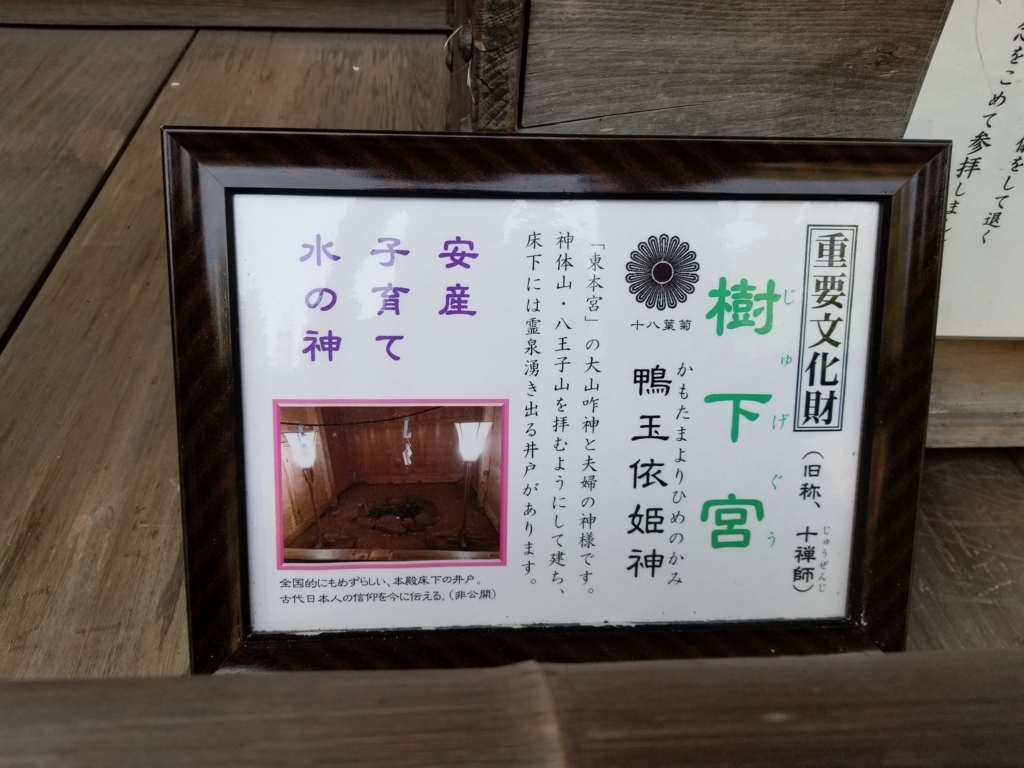 重要文化財
(旧称、十禅師)
じゅうぜんじ
樹下宮
じゅげぐう
十八葉菊
鴨玉依姫神
かもたまよりひめのかみ
「東本宮」の大山咋神と夫婦の神様です。
神体山・八王子山を拝むようにして建ち、
床下には霊泉湧き出る井戸があります。
安産
子育て
水の神
全国的にもめずらしい、本殿床下の井戸。
古代日本人の信仰を今に伝える。(非公開)
をして退く
念をこめて参拝しまし